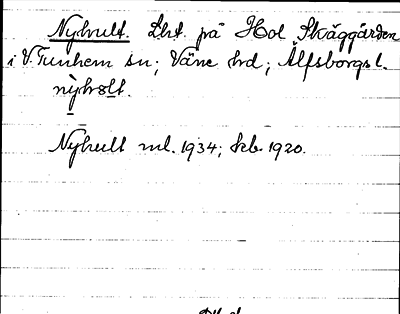 Nyhult. Lht. på Hol Skäggården
i V. Tunhem sn; Väne hd; Älfsborgs l.
nỳhơlt.
Nyhult ml. 1934; kb. 1920.